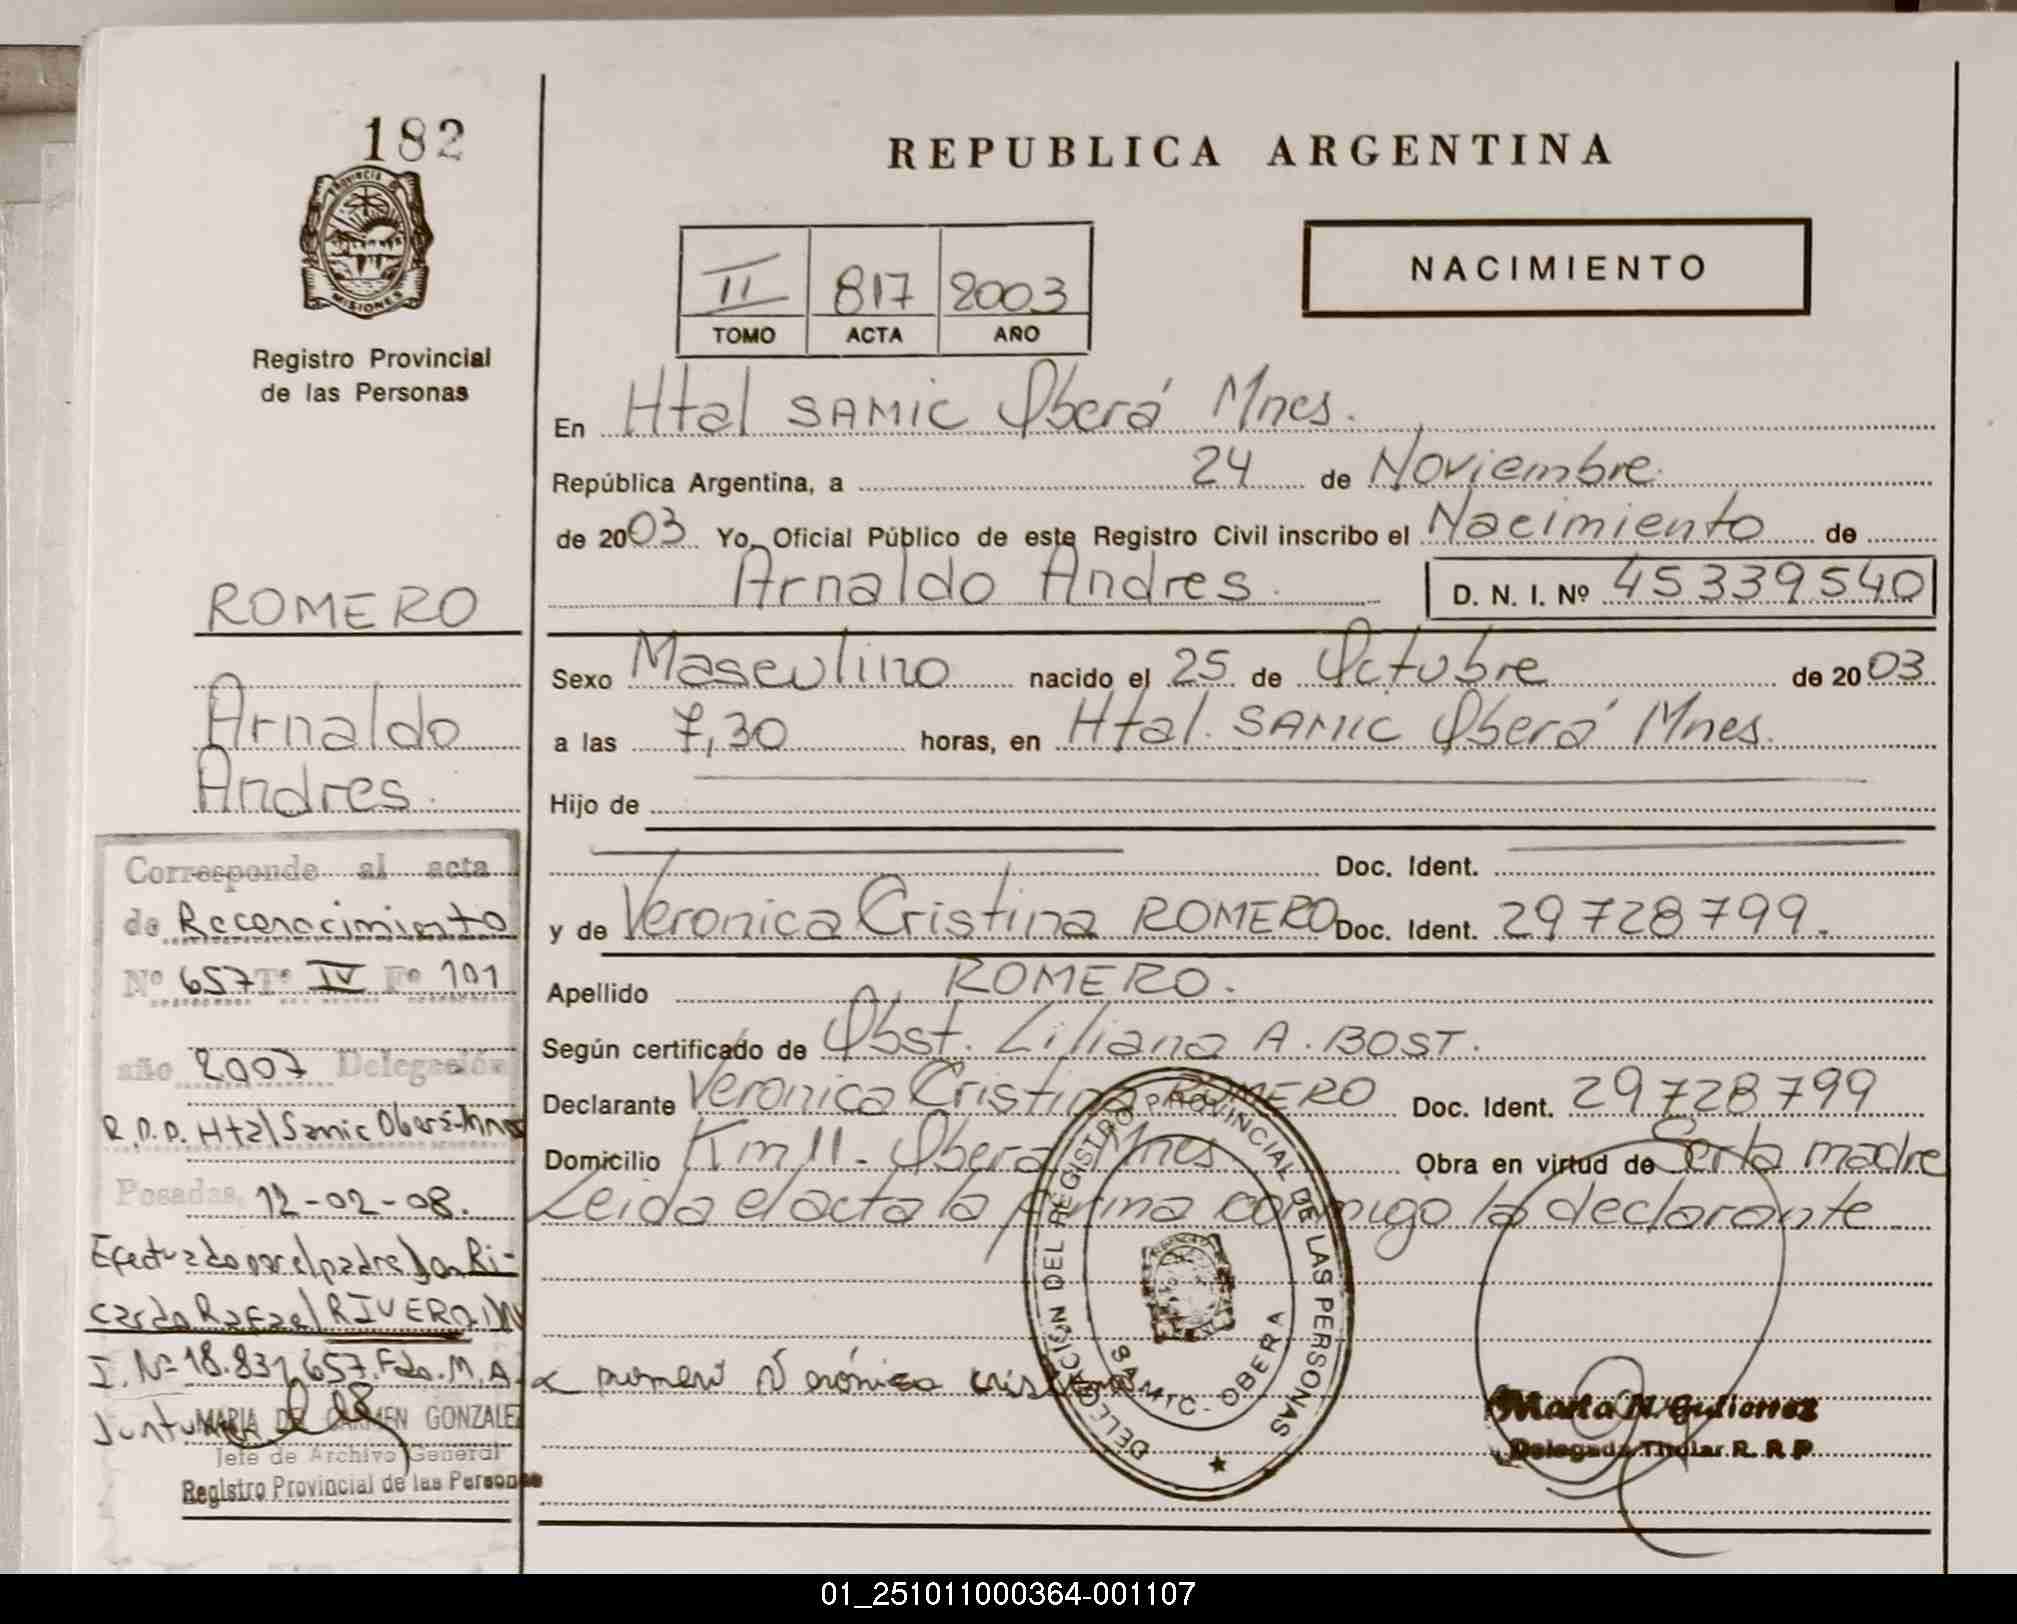 182
PROVINCIA DE
MISIONES
Registro Provincial
de las Personas
ROMERO
Arnaldo
Andres.
Corresponde al acta
de Reconocimiento
Nº 657 Tº IV Fº 101
año 2007 Delegación
R.P.P. Htal Samic Oberá-Mnes
Posadas, 12-02-08.
Efectuado por el padre Don Ri-
cardo Rafael RIVERO.
I. Nº 18.831,657. Fdo. M. A.
MARIA DEL CARMEN GONZALEZ
Jefe de Archivo General
Registro Provincial de las Personas
REPUBLICA ARGENTINA
II 817 2003
TOMO ACTA AÑO
NACIMIENTO
En Htal SAMIC Oberá Mnes.
República Argentina, a 24 de Noviembre
de 2003 Yo, Oficial Público de este Registro Civil inscribo el Nacimiento de
Arnaldo Andres. D. N. I. Nº 45339540
Sexo Masculino nacido el 25 de Octubre de 2003
a las 7,30 horas, en Htal. SAMIC Oberá Mnes.
Hijo de
Doc. Ident.
y de Veronica Cristina ROMERO Doc. Ident. 29728799.
Apellido ROMERO.
Según certificado de Obst. Liliana A. BOST.
Declarante Veronica Cristina ROMERO Doc. Ident. 29728799
Domicilio Km 11 - Oberá Mnes Obra en virtud de Ser la madre
Leida el acta la firma conmigo la declarante
romero Verónica cristina
DELEGACIÓN DEL REGISTRO PROVINCIAL DE LAS PERSONAS
SAMIC - OBERA
Marta N. Gutierrez
Delegada Titular R. P. P.
01_251011000364-001107